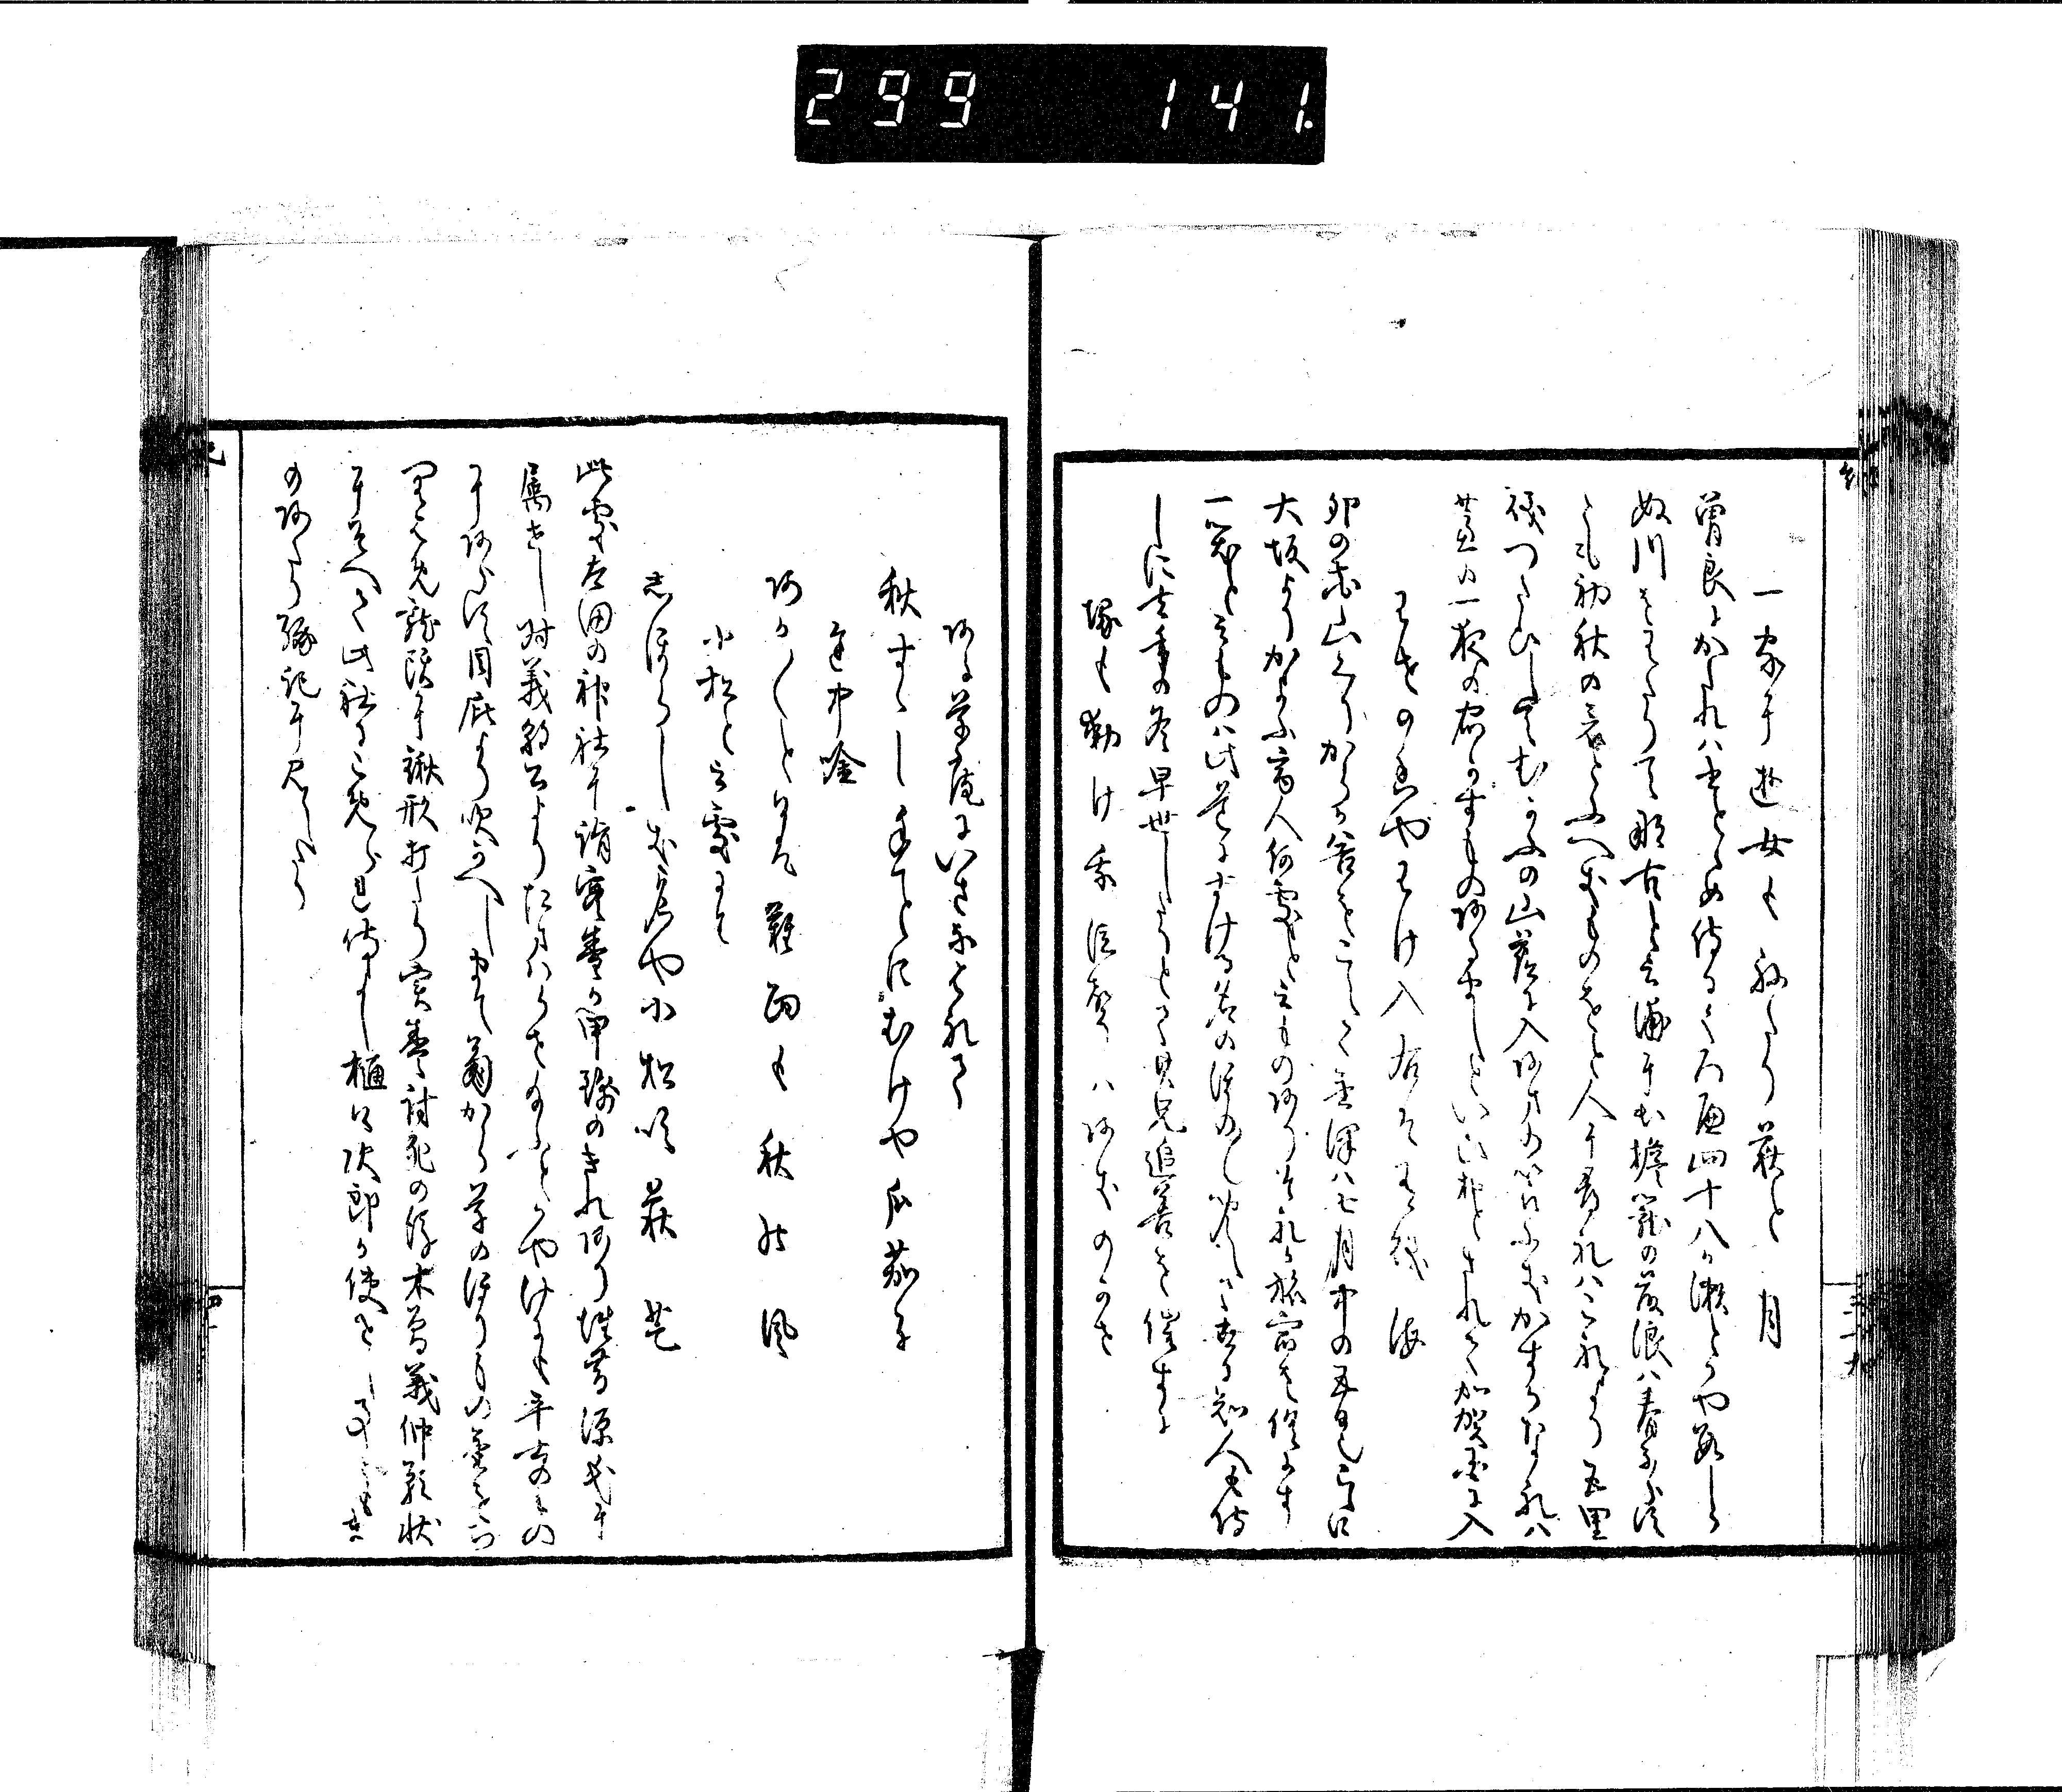 299 141.
一家に遊女も寝たり萩と月
曽良にかたれは書とゝめ侍るくろへ四十八か瀬とかや数しら
ぬ川をわたりて那古と云浦に出擔籠の藤浪は春ならす
とも初秋の哀とふへきものをと人に尋れはこれより五里
磯つたひしてむかふの山陰に入あまの苫ふきかすかなれは
蘆の一夜の宿かすものあるましといひおとされて加賀国に入
わせの香やわけ入右は有磯海
卯の花山くりからか谷をこえて金澤は七月中の五日也爰に
大坂よりかよふ商人何處と云ものありそれか旅宿を倶にす
一笑と云ものは此道にすける名のほのゝ聞えて世に知人も侍
しに去年の冬早世したりとて其兄追善を催すに
塚も動け我泣聲は秋の風
ある草庵にいさなはれて
秋すゝし手ことにむけや瓜茄子
途中唫
あかゝと日は難面も秋の風
小松と云處にて
しほらしき名や小松吹萩芒
此處太田の神社に詣実盛か甲錦のきれあり往昔源氏に
属せし時義朝公より給はらせ給ふとかやけにも平士のもの
にあらす目庇より吹かへしまて菊から草のほりもの金を
龍頭に鍬形打たり実盛討死の後木曽義仲願状
にそへて此社にこめられ侍よし樋口次郎か使せし事とも
のあたり縁記に見えたり